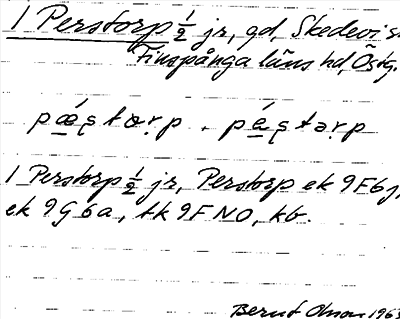 1 Perstorp ½ jr, gd, Skedevi s
Finspånga läns hd, Östg.
pǽ̱ştæṛp . pá̱ştəṛp
1 Perstorp ½ jr, Perstorp ek 9F6j,
ek 9G6a, tk 9F NO, kb.
Bernt Olson 1963